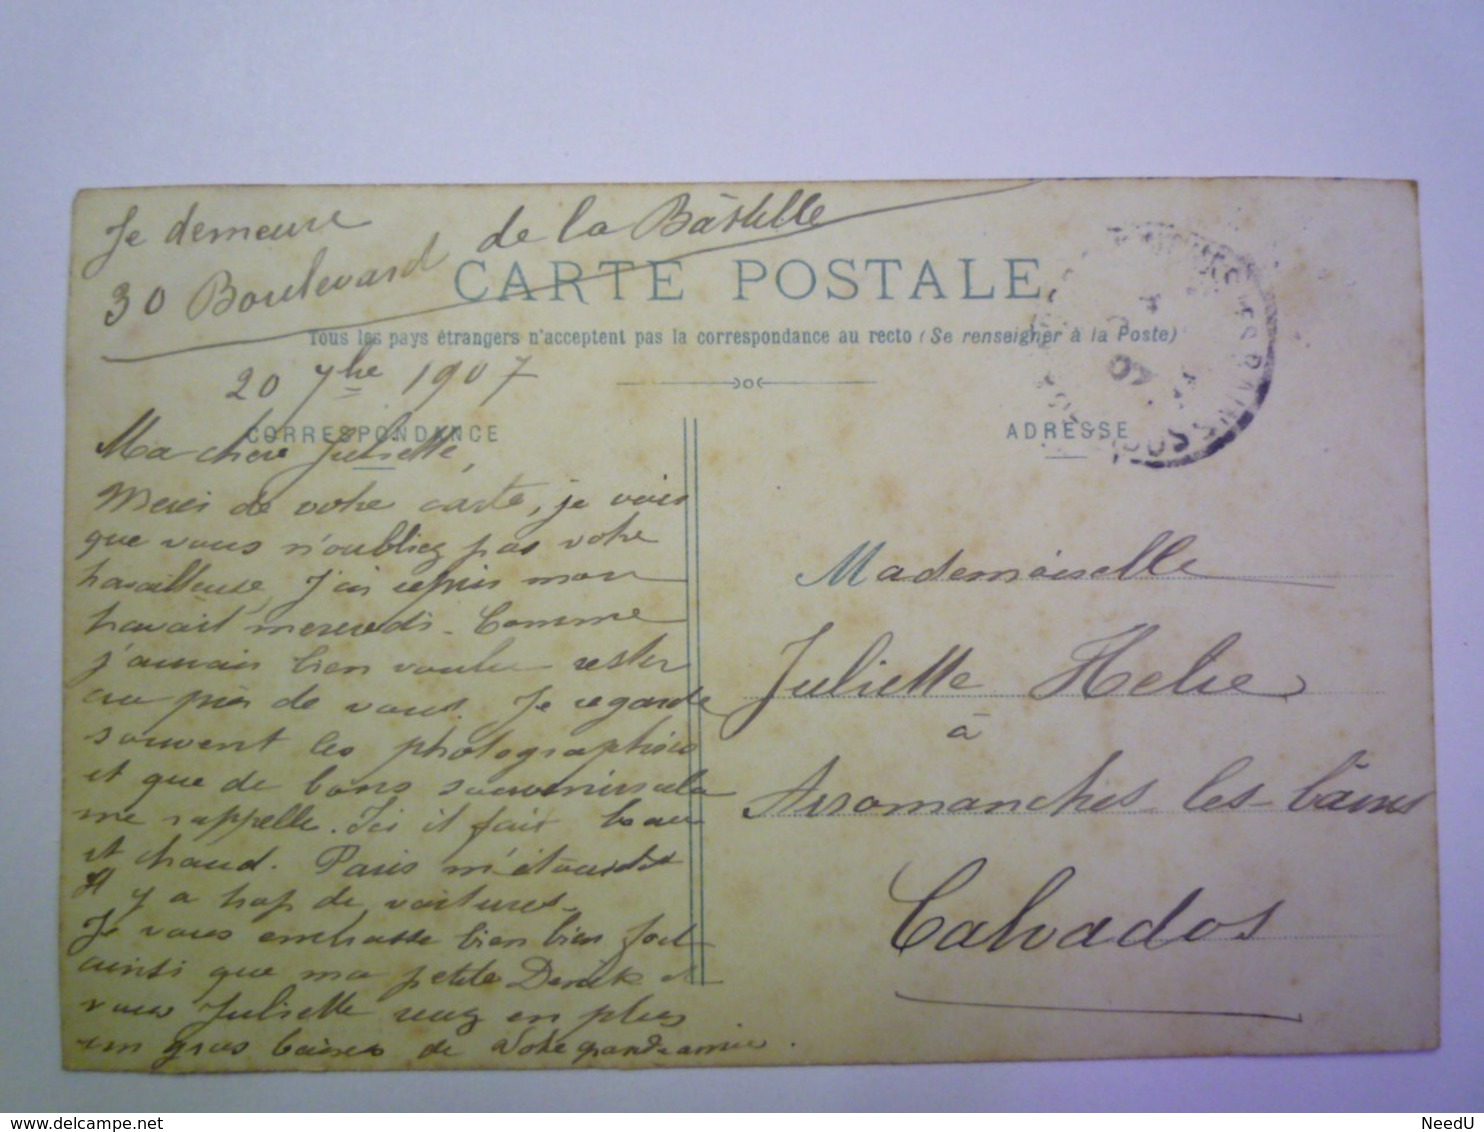 Je demeure
30 Boulevard de la Bâstille
CARTE POSTALE
Tous les pays étrangers n'acceptent pas la correspondance au recto (Se renseigner à la Poste)
20 7bre 1907
CORRESPONDANCE
Ma chère Juliette,
Merci de votre carte, je vois
que vous n'oubliez pas votre
travailleuse, J'ai repris mon
travail mercredi. Comme
j'aurais bien voulu rester
au près de vous. Je regarde
souvent les photographies
et que de bons souvenirs cela
me rappelle. Ici il fait beau
et chaud. Paris m'étourdit
Il y a trop de voitures.
Je vous embrasse bien bien fort
ainsi que ma petite et
vous Juliette en plus
un gros baiser de votre grande amie.
ADRESSE
Mademoiselle
Juliette Helie
à
Arromanches-les-bains
Calvados
07
www.delcampe.net
NeedU